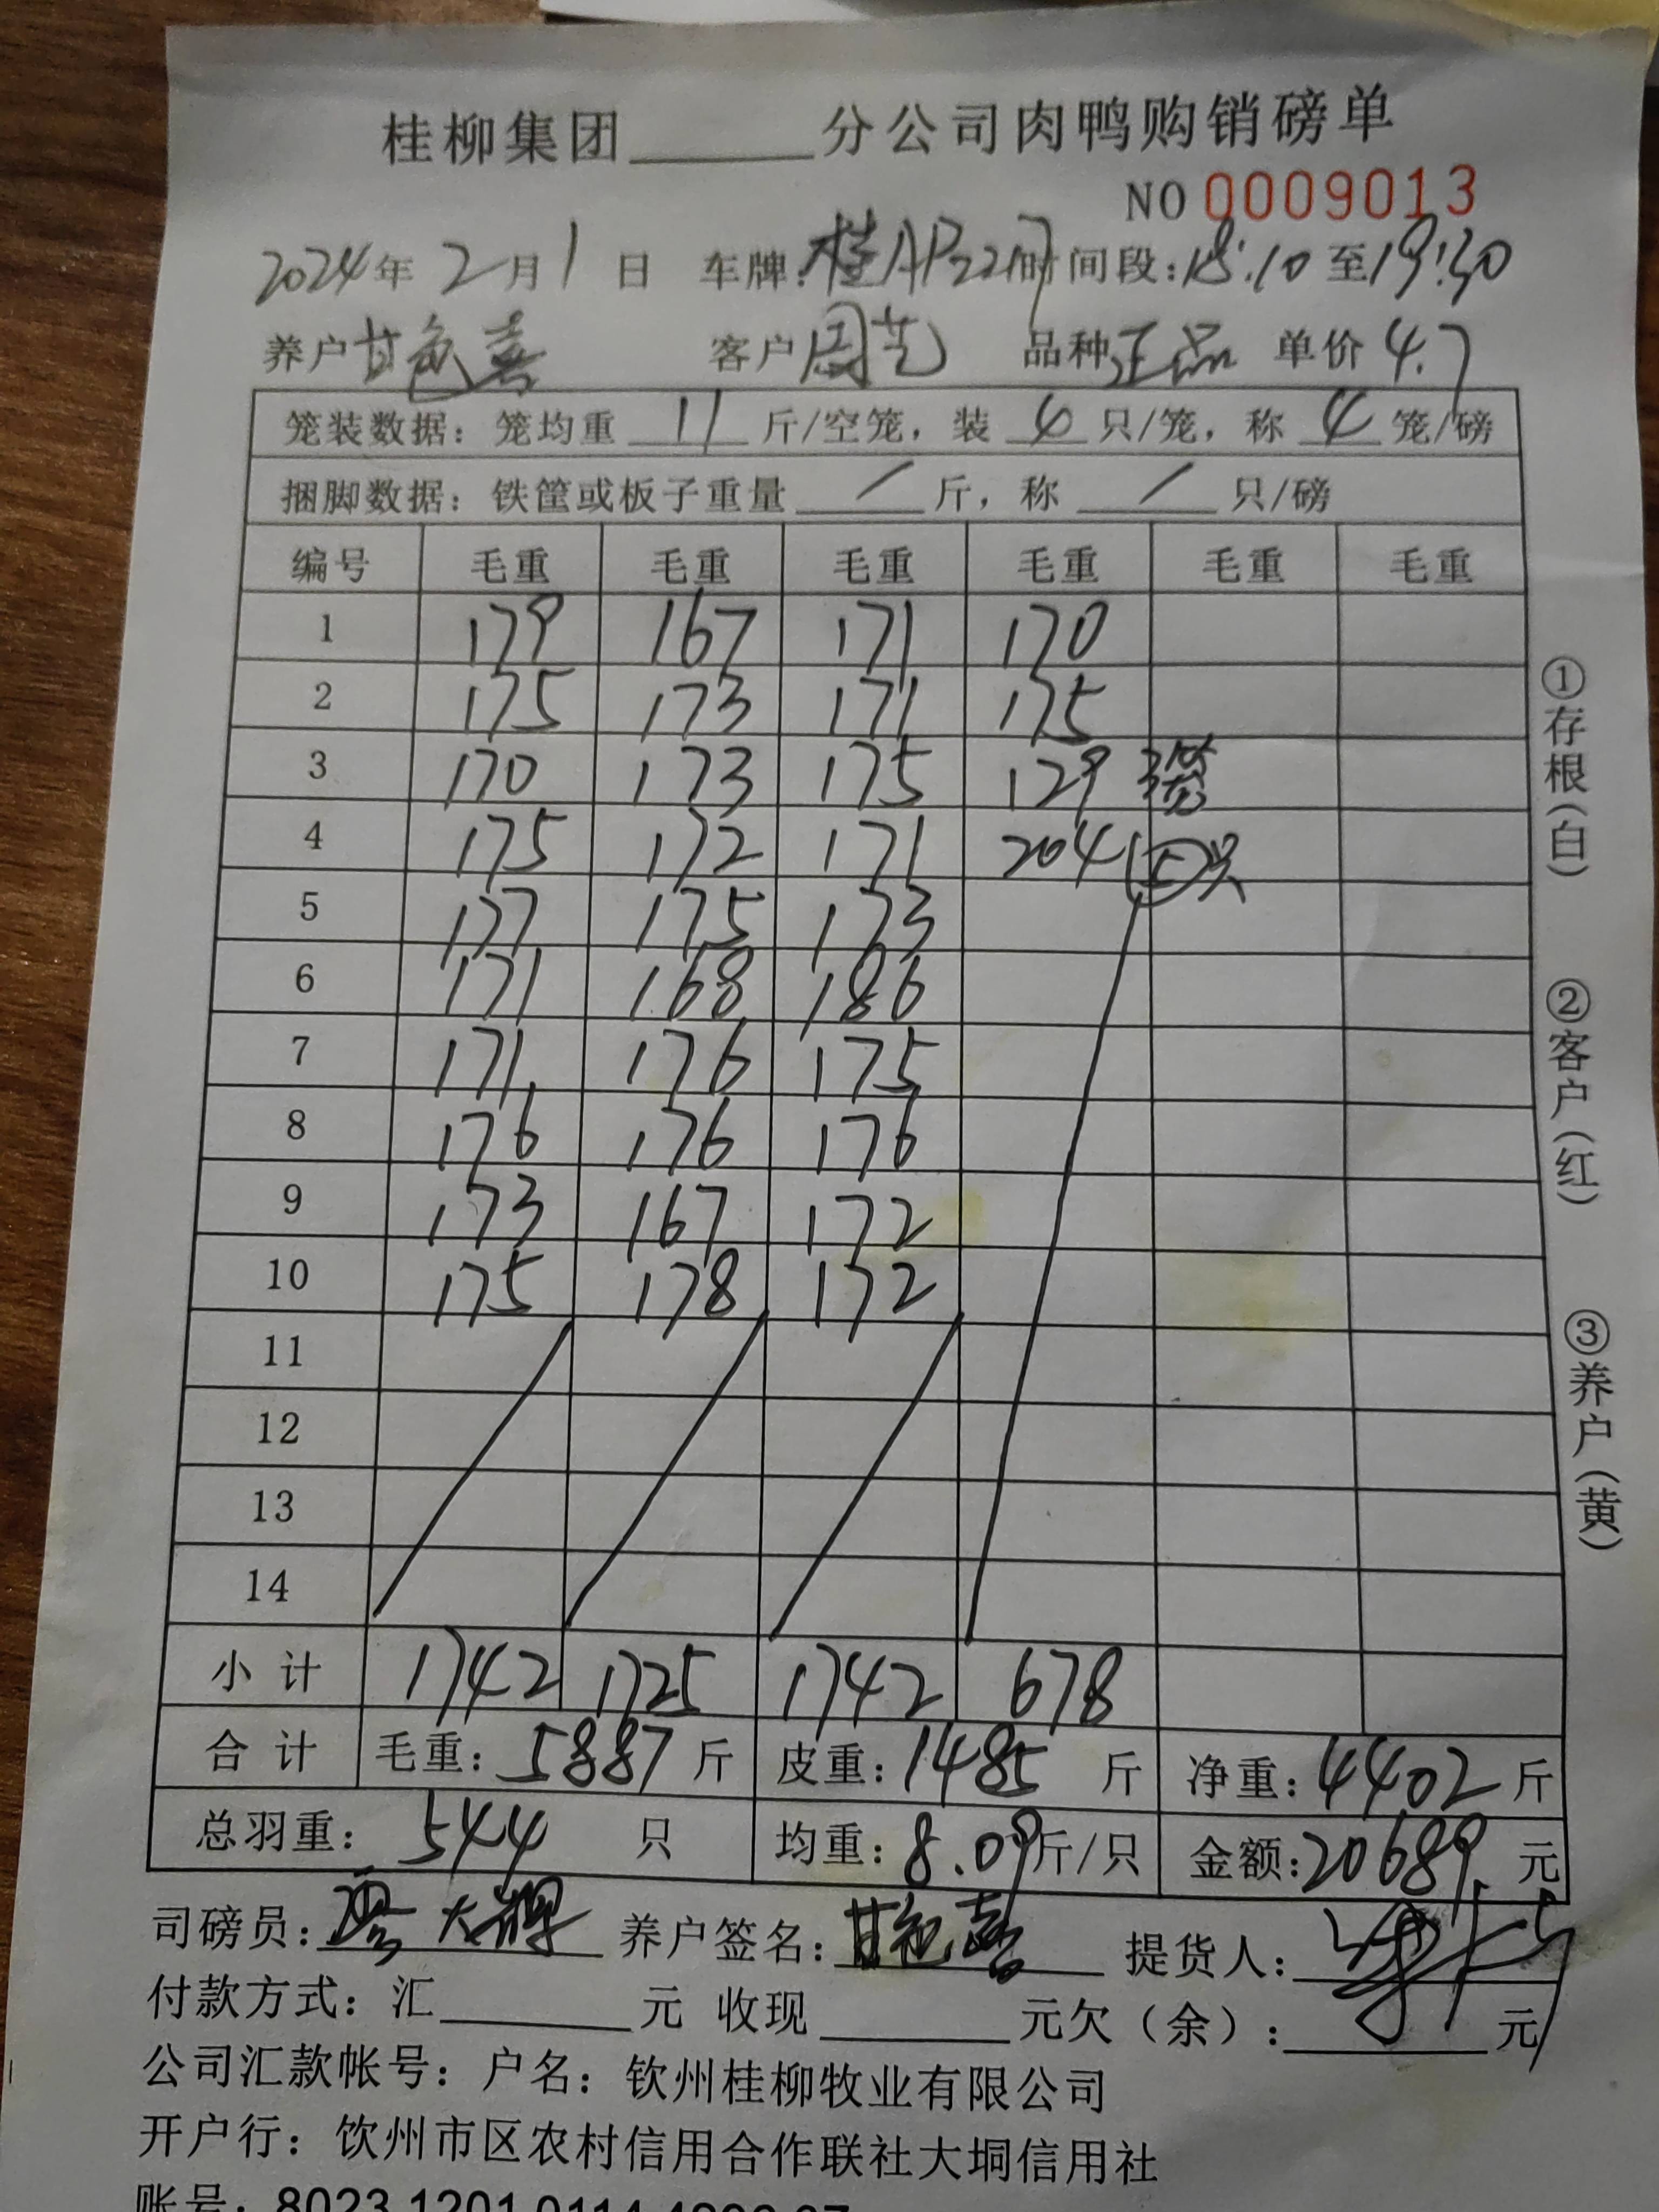 桂柳集团______分公司肉鸭购销磅单
NO 0009013
2024年2月1日 车牌:桂AP2217时间段:18:10至19:30
养户甘色喜 客户周艺 品种正品 单价4.7
笼装数据：笼均重 11 斤/空笼，装 4 只/笼，称 4 笼/磅
捆脚数据：铁筐或板子重量 / 斤，称 / 只/磅
编号 毛重 毛重 毛重 毛重 毛重 毛重
1 179 167 171 170
2 175 173 171 175
3 170 173 175 129 3笼
4 175 172 171 204 只
5 177 175 173
6 171 168 186
7 171 176 175
8 176 176 176
9 173 167 172
10 175 178 172
11
12
13
14
小计 1742 1725 1742 678
合计 毛重：5887斤 皮重：1485斤 净重：4402斤
总羽重：544只 均重：8.09斤/只 金额：20689.元
司磅员： 大 养户签名：甘色喜 提货人：
付款方式：汇______元 收现______元欠（余）：______元
公司汇款帐号：户名：钦州桂柳牧业有限公司
开户行：钦州市区农村信用合作联社大垌信用社
账号：8023 1201 0114
①存根(白)
②客户(红)
③养户(黄)